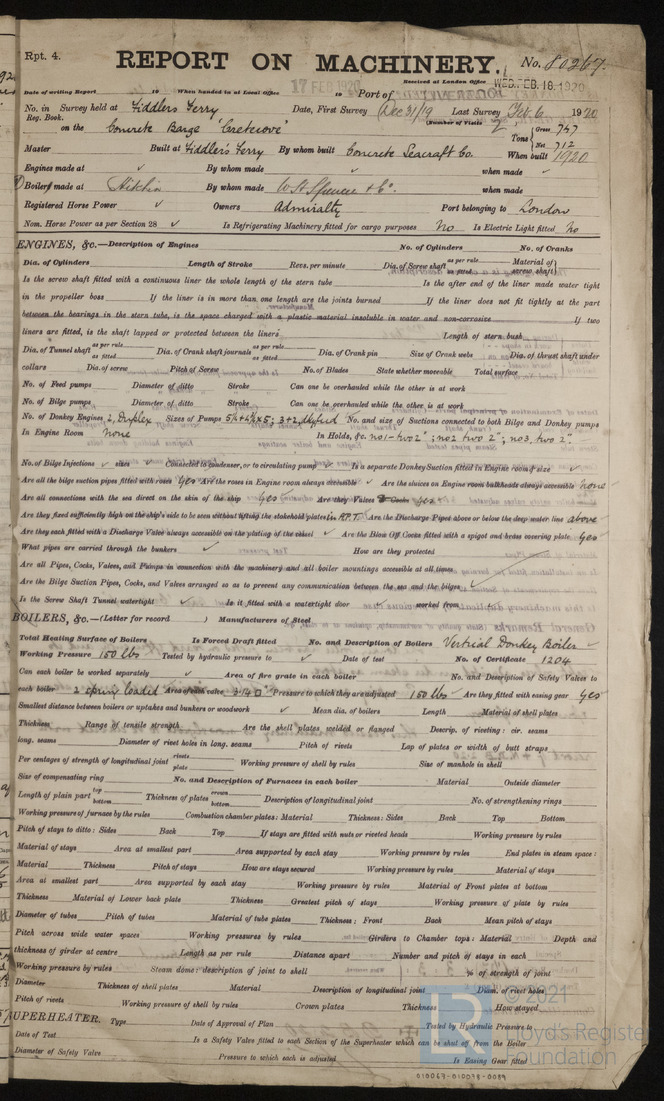 Rpt. 4.
REPORT ON MACHINERY.
No. 80267
Received at London Office WED. FEB. 18. 1920
Date of writing Report 19 When handed in at Local Office 17 FEB 1920 Port of
No. in Survey held at Fiddlers Ferry Date, First Survey Dec 31/19 Last Survey Feb. 6 1920
Reg. Book. (Number of Visits 2
on the Concrete Barge "Cretcove" Tons { Gross 747 Net 712
Master Built at Fiddler's Ferry By whom built Concrete Seacraft Co. When built 1920
Engines made at By whom made when made
Boilers made at Hitchin By whom made W. H. Spencer & Co. when made
Registered Horse Power Owners Admiralty Port belonging to London
Nom. Horse Power as per Section 28 Is Refrigerating Machinery fitted for cargo purposes No Is Electric Light fitted No
ENGINES, &c.—Description of Engines No. of Cylinders No. of Cranks
Dia. of Cylinders Length of Stroke Revs. per minute Dia. of Screw shaft as per rule as fitted Material of screw shaft
Is the screw shaft fitted with a continuous liner the whole length of the stern tube Is the after end of the liner made water tight
in the propeller boss If the liner is in more than one length are the joints burned If the liner does not fit tightly at the part
between the bearings in the stern tube, is the space charged with a plastic material insoluble in water and non-corrosive If two
liners are fitted, is the shaft lapped or protected between the liners Length of stern bush
Dia. of Tunnel shaft as per rule as fitted Dia. of Crank shaft journals as per rule as fitted Dia. of Crank pin Size of Crank webs Dia. of thrust shaft under
collars Dia. of screw Pitch of Screw No. of Blades State whether moveable Total surface
No. of Feed pumps Diameter of ditto Stroke Can one be overhauled while the other is at work
No. of Bilge pumps Diameter of ditto Stroke Can one be overhauled while the other is at work
No. of Donkey Engines 2, Duplex Sizes of Pumps No. and size of Suctions connected to both Bilge and Donkey pumps
In Engine Room None In Holds, &c. no1 - two 2"; no2 two 2"; no3, two 2"
No. of Bilge Injections sizes Connected to condenser, or to circulating pump Is a separate Donkey Suction fitted in Engine room & size
Are all the bilge suction pipes fitted with roses Yes Are the roses in Engine room always accessible Are the sluices on Engine room bulkheads always accessible none
Are all connections with the sea direct on the skin of the ship Yes Are they Valves or Cocks yes
Are they fixed sufficiently high on the ship's side to be seen without lifting the stokehold plates Are the Discharge Pipes above or below the deep water line above
Are they each fitted with a Discharge Valve always accessible on the plating of the vessel Are the Blow Off Cocks fitted with a spigot and brass covering plate Yes
What pipes are carried through the bunkers How are they protected
Are all Pipes, Cocks, Valves, and Pumps in connection with the machinery and all boiler mountings accessible at all times
Are the Bilge Suction Pipes, Cocks, and Valves arranged so as to prevent any communication between the sea and the bilges
Is the Screw Shaft Tunnel watertight Is it fitted with a watertight door worked from
BOILERS, &c.—(Letter for record ) Manufacturers of Steel
Total Heating Surface of Boilers Is Forced Draft fitted No. and Description of Boilers Vertical Donkey Boiler
Working Pressure 150 lbs Tested by hydraulic pressure to Date of test No. of Certificate 1204
Can each boiler be worked separately Area of fire grate in each boiler No. and Description of Safety Valves to
each boiler 2 spring loaded Area of each valve 3.140" Pressure to which they are adjusted 150 lbs Are they fitted with easing gear Yes
Smallest distance between boilers or uptakes and bunkers or woodwork Mean dia. of boilers Length Material of shell plates
Thickness Range of tensile strength Are the shell plates welded or flanged Descrip. of riveting: cir. seams
long. seams Diameter of rivet holes in long. seams Pitch of rivets Lap of plates or width of butt straps
Per centages of strength of longitudinal joint rivets plate Working pressure of shell by rules Size of manhole in shell
Size of compensating ring No. and Description of Furnaces in each boiler Material Outside diameter
Length of plain part top bottom Thickness of plates crown bottom Description of longitudinal joint No. of strengthening rings
Working pressure of furnace by the rules Combustion chamber plates: Material Thickness: Sides Back Top Bottom
Pitch of stays to ditto: Sides Back Top If stays are fitted with nuts or riveted heads Working pressure by rules
Material of stays Area at smallest part Area supported by each stay Working pressure by rules End plates in steam space:
Material Thickness Pitch of stays How are stays secured Working pressure by rules Material of stays
Area at smallest part Area supported by each stay Working pressure by rules Material of Front plates at bottom
Thickness Material of Lower back plate Thickness Greatest pitch of stays Working pressure of plate by rules
Diameter of tubes Pitch of tubes Material of tube plates Thickness: Front Back Mean pitch of stays
Pitch across wide water spaces Working pressures by rules Girders to Chamber tops: Material Depth and
thickness of girder at centre Length as per rule Distance apart Number and pitch of stays in each
Working pressure by rules Steam dome: description of joint to shell % of strength of joint
Diameter Thickness of shell plates Material Description of longitudinal joint Diam. of rivet holes
Pitch of rivets Working pressure of shell by rules Crown plates Thickness How stayed
SUPERHEATER. Type Date of Approval of Plan Tested by Hydraulic Pressure to
Date of Test Is a Safety Valve fitted to each Section of the Superheater which can be shut off from the Boiler
Diameter of Safety Valve Pressure to which each is adjusted Is Easing Gear fitted
© 2021
Lloyd's Register
Foundation
010067-010078-0089